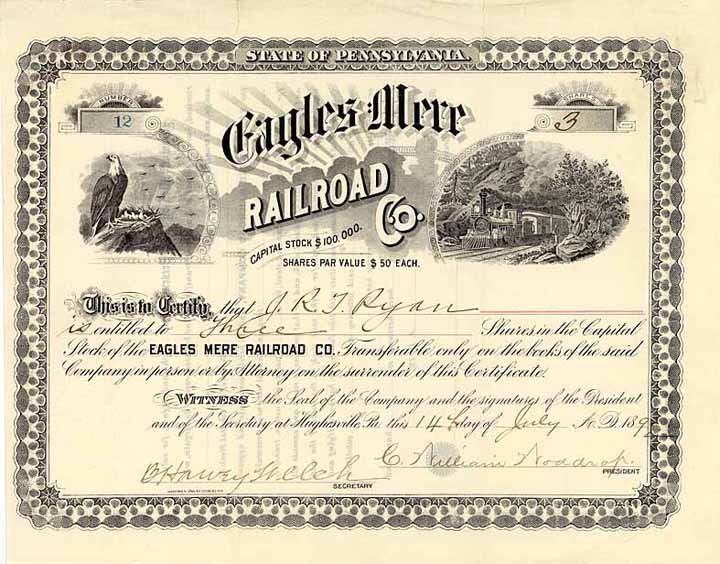 STATE OF PENNSYLVANIA.
NUMBER
12
SHARES
3
Eagles Mere
RAILROAD
Co.
CAPITAL STOCK $100,000.
SHARES PAR VALUE $50 EACH.
This is to Certify, that J. R. T. Ryan
is entitled to Three Shares in the Capital
Stock of the EAGLES MERE RAILROAD CO. Transferable only on the books of the said
Company in person or by Attorney on the surrender of this Certificate.
WITNESS the Seal of the Company and the signatures of the President
and of the Secretary at Hughesville Pa. this 14th day of July A.D. 189
C. William Woddrop.
PRESIDENT
Welch
SECRETARY